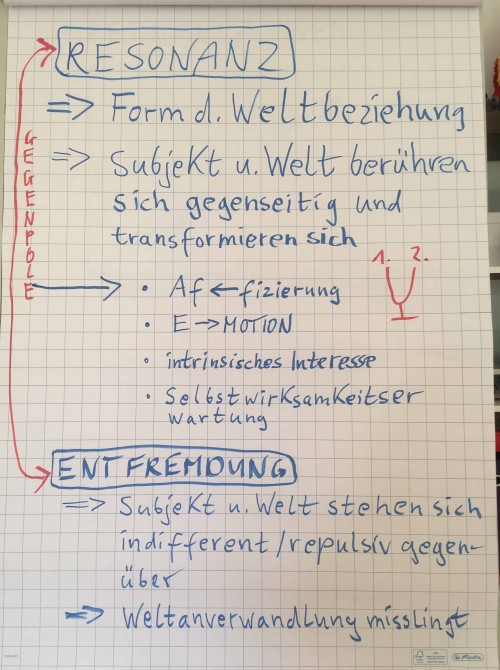 RESONANZ
=> Form d. Weltbeziehung
=> Subjekt u. Welt berühren
sich gegenseitig und
transformieren sich
GEGENPOLE
1. 2.
• Af ← fizierung
• E → MOTION
• intrinsisches Interesse
• Selbstwirksamkeitser
wartung
ENTFREMDUNG
=> Subjekt u. Welt stehen sich
indifferent/repulsiv gegen-
über
=> Weltanverwandlung misslingt